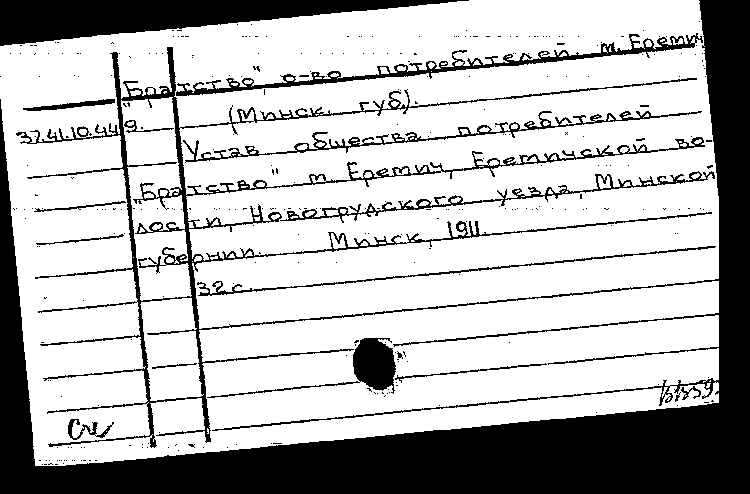 "Братство", о-во потребителей м. Еремич
(Минск. губ).
37.41.10.44 9.
Устав общества потребителей
"Братство" м. Еремич, Еремичской во-
лости, Новогрудского уезда, Минской
губернии. Минск, 1911.
32 с.